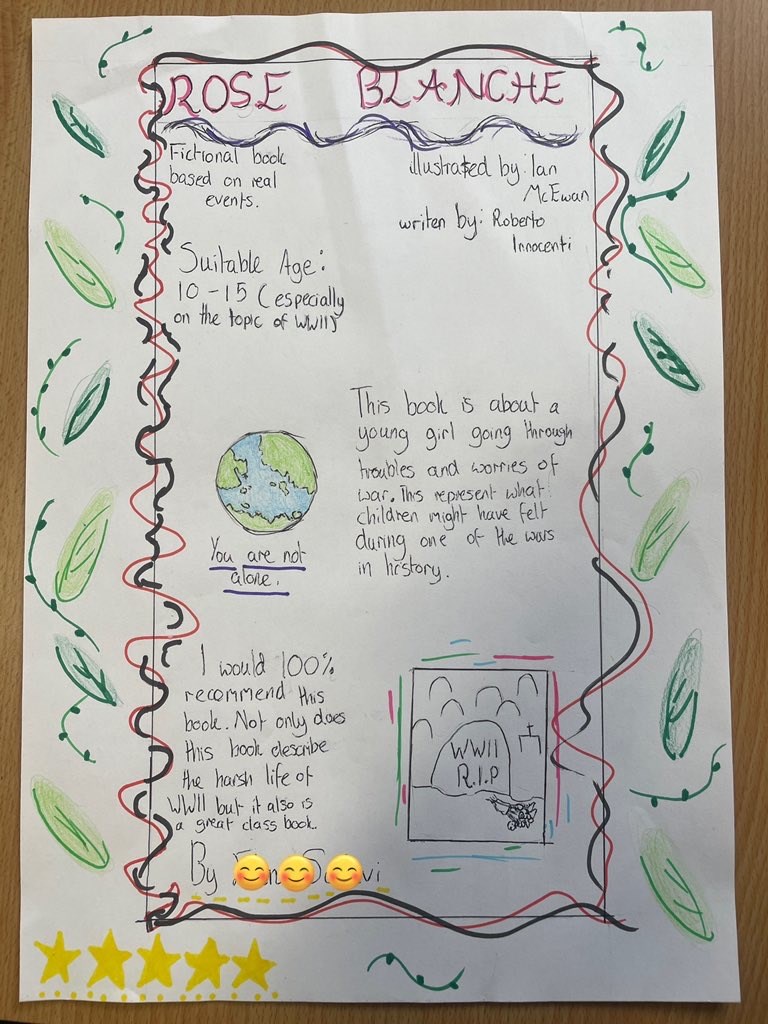 ROSE BLANCHE
Fictional book
based on real
events.
illustrated by: Ian
McEwan
writen by: Roberto
Innocenti
Suitable Age:
10-15 (especially
on the topic of WWII)
This book is about a
young girl going through
troubles and worries of
war. This represent what
children might have felt
during one of the wars
in history.
You are not
alone.
I would 100%
recommend this
book. Not only does
this book describe
the harsh life of
WWII but it also is
a great class book.
WWII
R.I.P
By